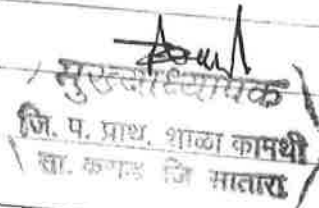 मुख्याध्यापक
जि. प. प्राथ. शाळा कामथी
जि सातारा